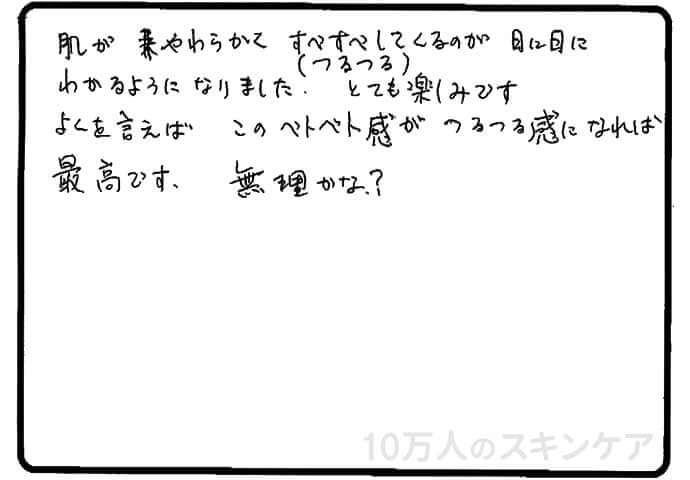 肌が柔やわらかくて すべすべしてくるのが 目に目に
(つるつる)
わかるようになりました. とても楽しみです
よくを言えば このベトベト感が つるつる感になれば
最高です、 無理かな?
10万人のスキンケア